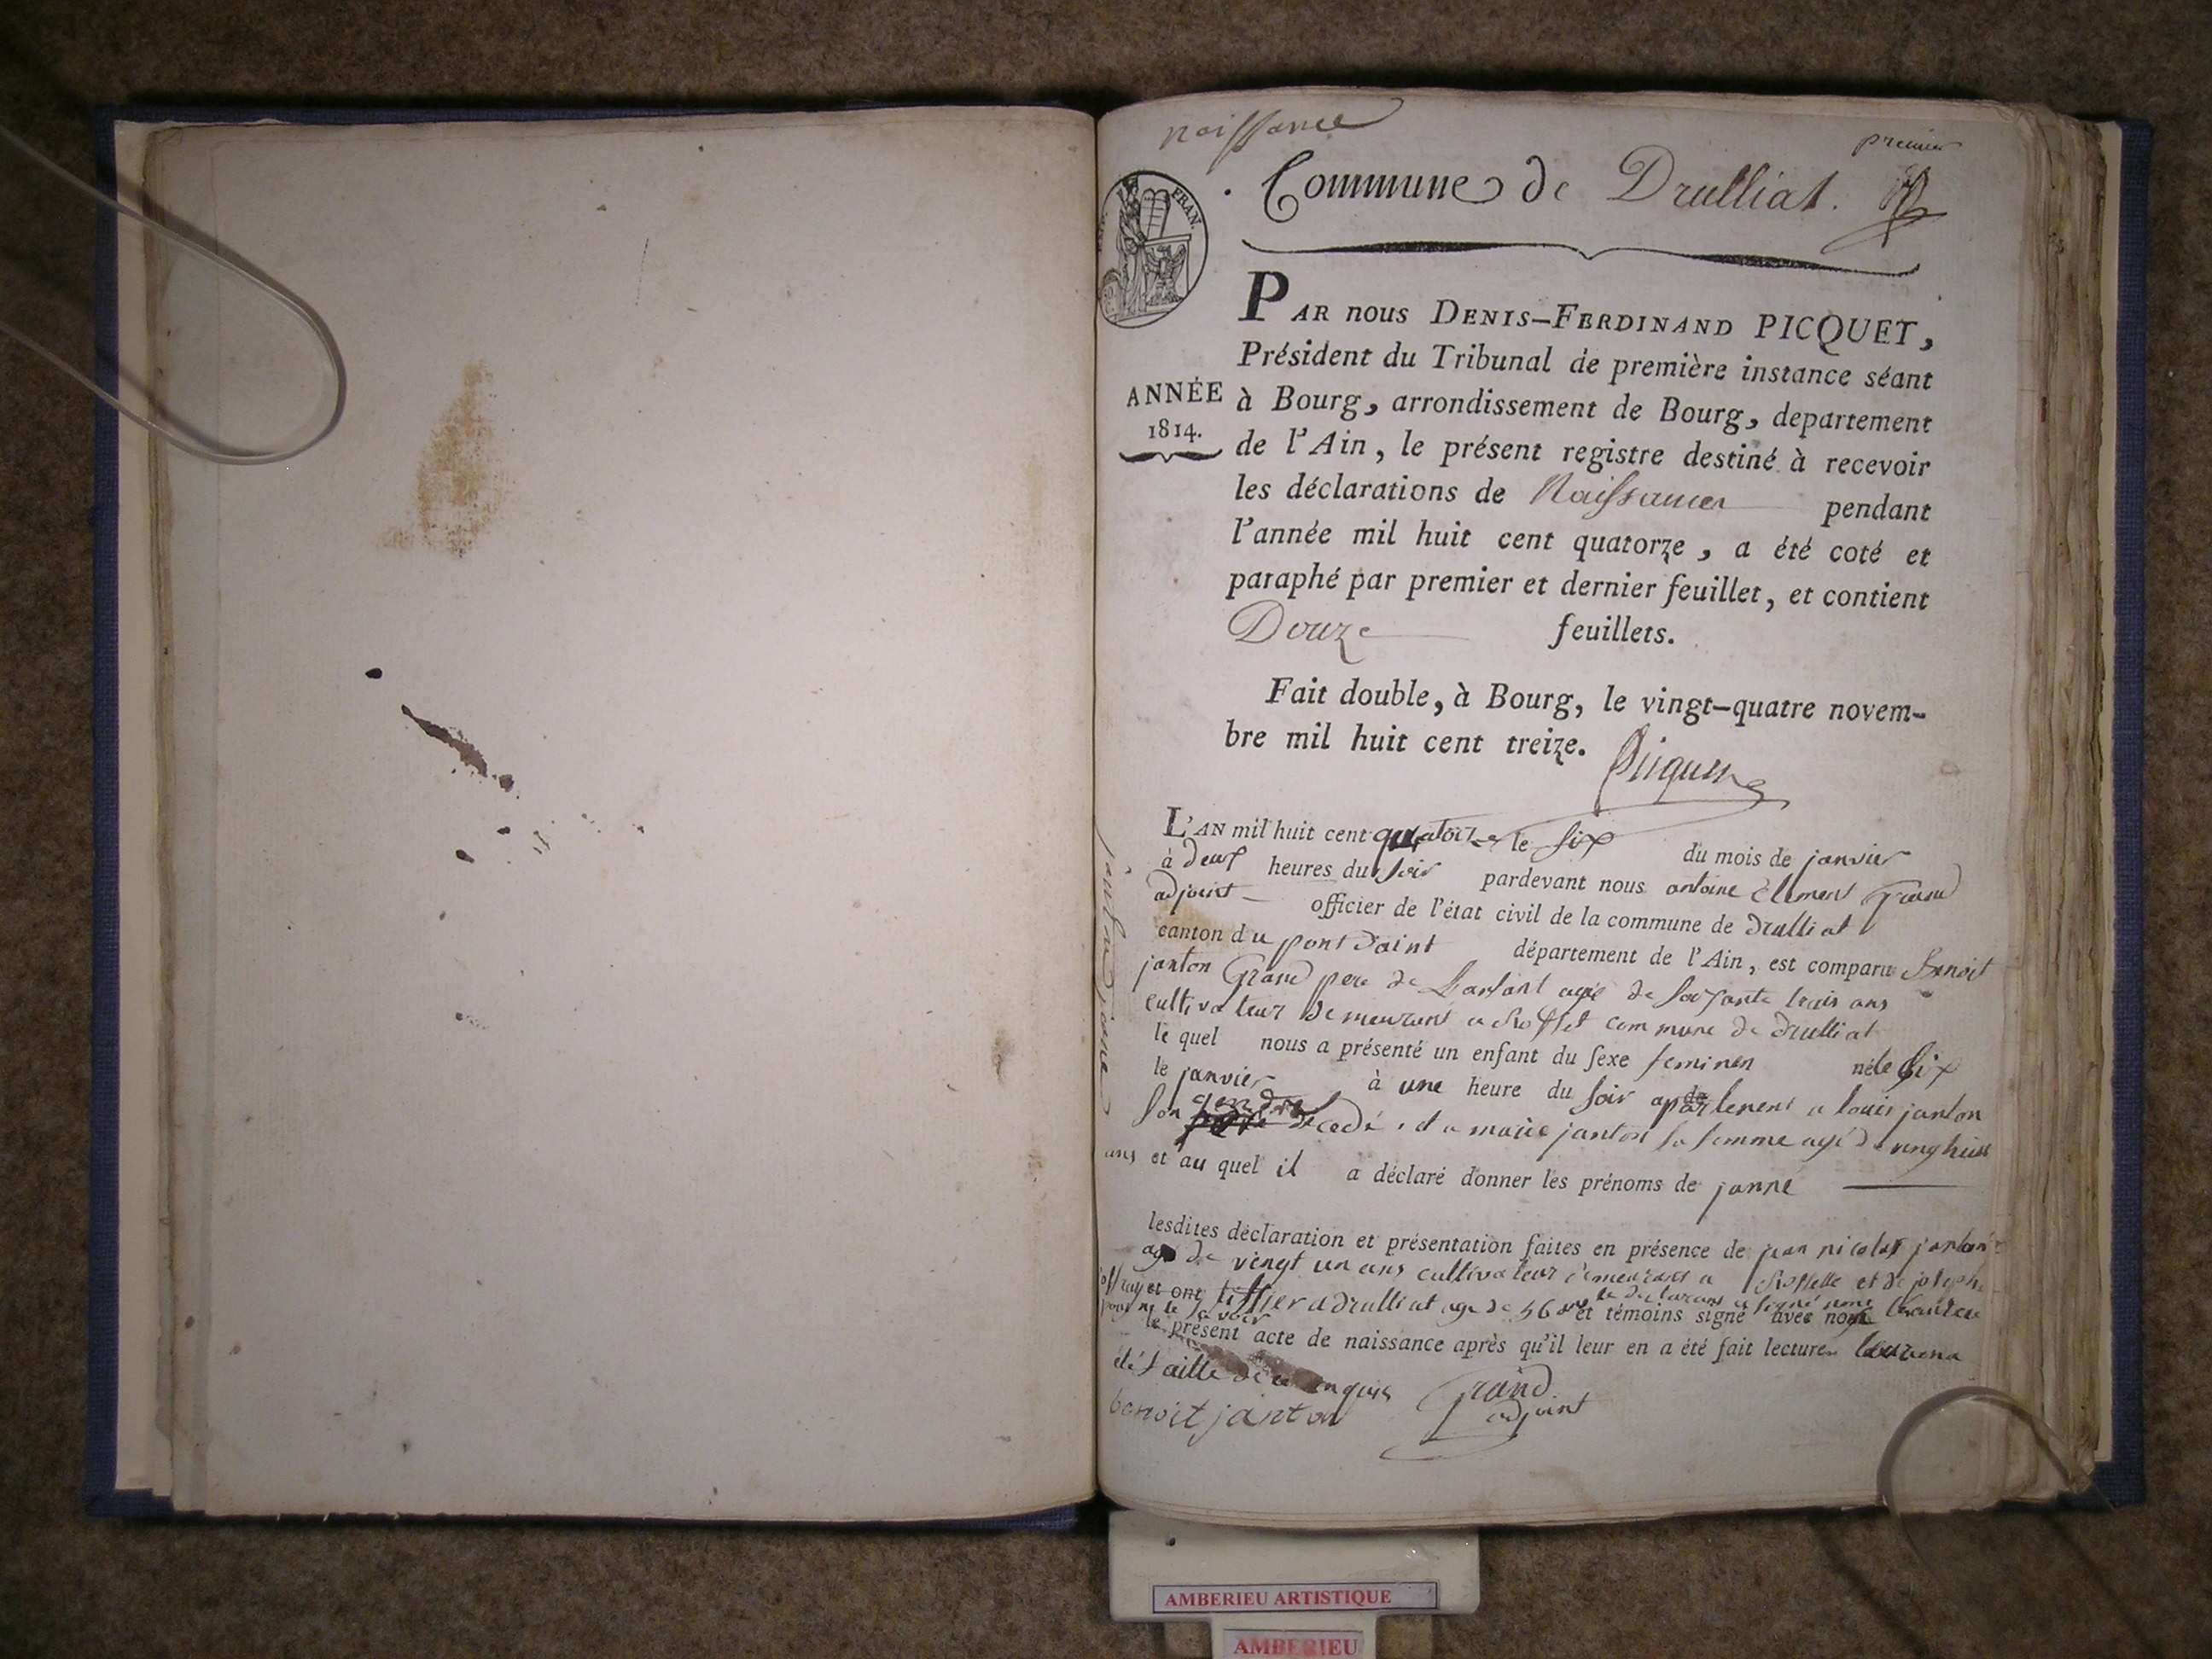 naissance
premier
Commune de Drulliat.
FRAN.
PAR nous DENIS-FERDINAND PICQUET,
Président du Tribunal de première instance séant
ANNÉE
1814.
à Bourg, arrondissement de Bourg, departement
de l'Ain, le présent registre destiné à recevoir
les déclarations de Naissances pendant
l'année mil huit cent quatorze, a été coté et
paraphé par premier et dernier feuillet, et contient
Douze feuillets.
Fait double, à Bourg, le vingt-quatre novem-
bre mil huit cent treize.
Picquet
L'AN mil huit cent quatorze le six du mois de janvier
à deux heures du soir pardevant nous antoine Clement Grand
adjoint officier de l'état civil de la commune de drulliat
canton du pont d'aint département de l'Ain, est comparu Benoit
janton Grand pere de Lanfant agé de soisante trais ans
cultivateur demeurant a commune de drulliat
le quel nous a présenté un enfant du sexe feminen né le six
le janvier à une heure du soir apartenent a louis janton
son gendre decedé, et a marie janton sa femme agé de vinghuit
ans et au quel il a déclaré donner les prénoms de janne
lesdites déclaration et présentation faites en présence de jean nicolas janton
agé de vingt un ans cultivateur demeurant a et de joseph
et ont tissier a drulliat age de 56 ans et témoins signé avec nous
le présent acte de naissance après qu'il leur en a été fait lecture
benoit janton
Grand
adjoint
janton janne
AMBERIEU ARTISTIQUE
AMBERIEU